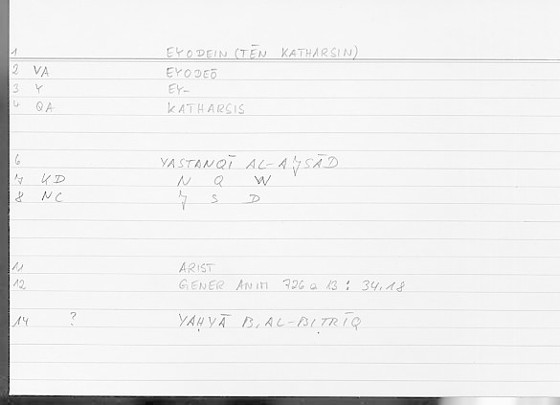 1 EYODEIN (TĒN KATHARSIN)
2 VA EYODEŌ
3 Y EY-
4 QA KATHARSIS
6 YASTANQĪ AL-AJ̌SĀD
7 KD N Q W
8 NC J̌ S D
11 ARIST
12 GENER ANIM 726 a 13 : 34.18
14 ? YAḤYĀ B. AL-BIṬRĪQ